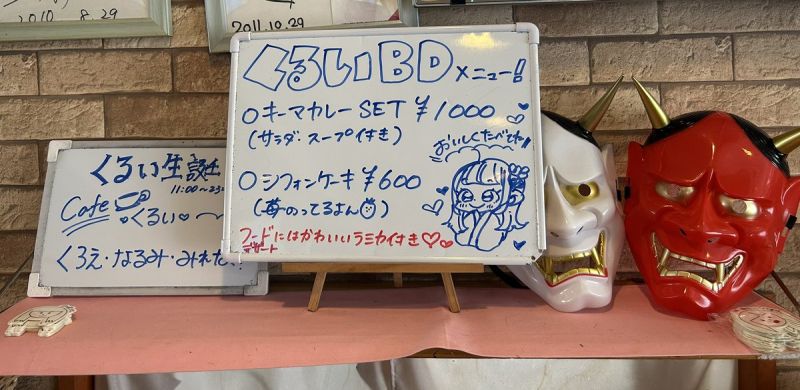 2010.8.29
2011.10.29
くるいBDメニュー!
○キーマカレーSET ¥1000
(サラダ・スープ付き)
○シフォンケーキ ¥600
(苺のってるよん)
フードにはかわいいラミカ付き♡♡
デザート
おいしくたべてね!
くるい生誕
11:00〜23:
Cafe
♥くるい♥〜
くろえ・なるみ・みれた